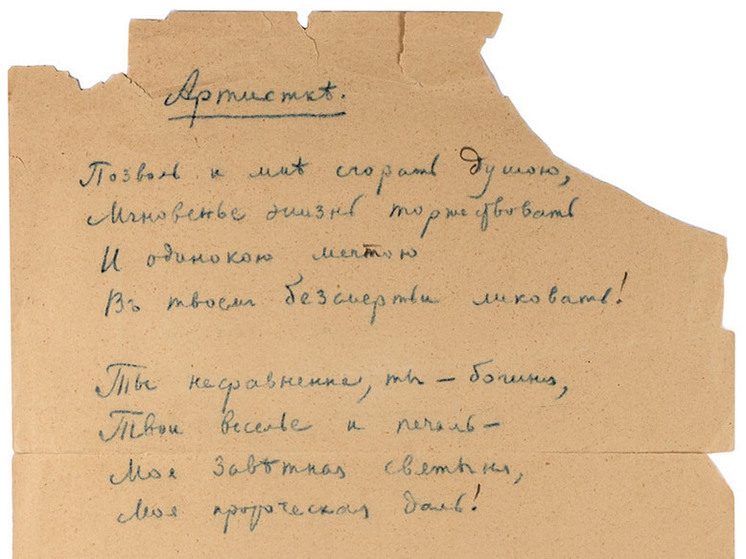 Артисткѣ.
Позволь и мнѣ сгорать душою,
Мгновенье жизнь торжествовать
И одинокою мечтою
Въ твоемъ безсмертьи ликовать!
Ты несравненна, ты — богиня,
Твои веселье и печаль —
Моя завѣтная святыня,
Моя пророческая даль!